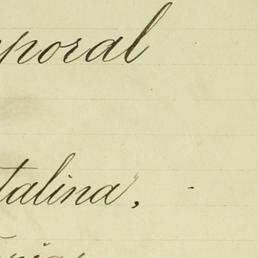 poral
talina,